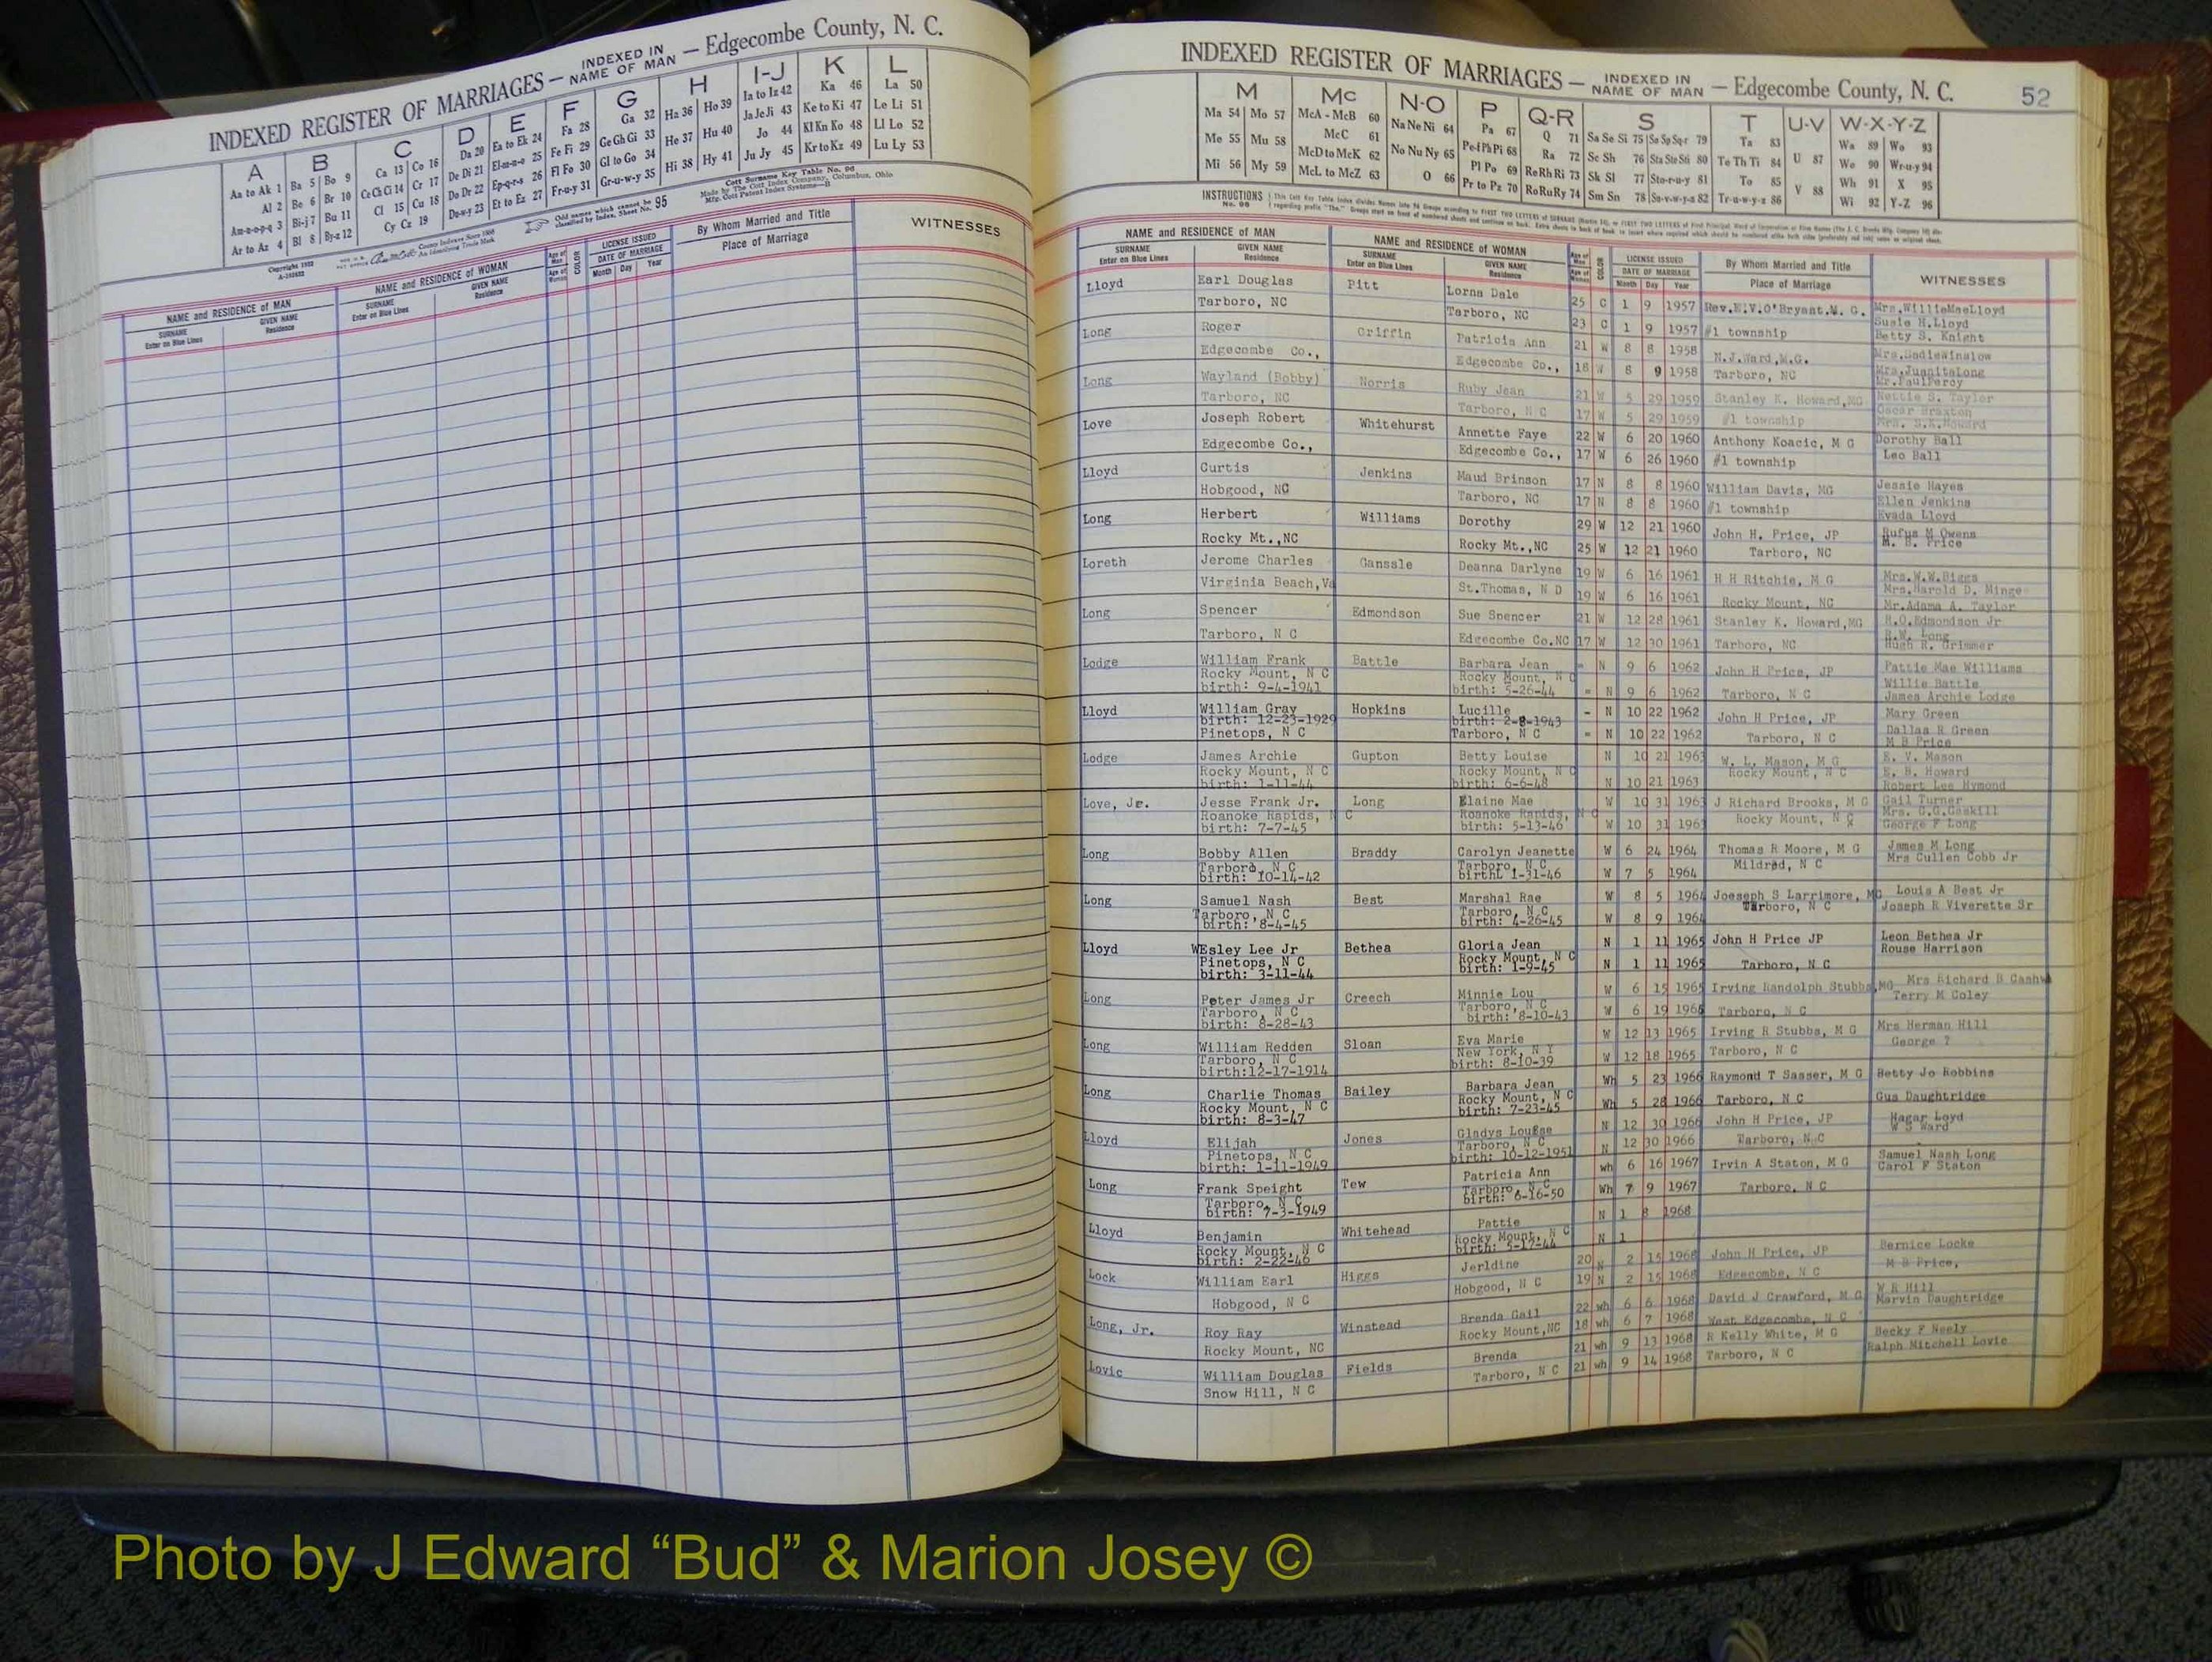 INDEXED REGISTER OF MARRIAGES — INDEXED IN NAME OF MAN — Edgecombe County, N. C.
A B C D E F G H I-J K L
Aa to Ak 1 Ba 5 Bo 9 Ca 13 Co 16 Da 20 Ea to Ek 24 Fa 28 Ga 32 Ha 36 Ho 39 Ia to Iz 42 Ka 46 La 50
Al 2 Be 6 Br 10 Ce Ch Ci 14 Cr 17 De Di 21 El-m-n-o 25 Fe Fi 29 Ge Gh Gi 33 He 37 Hu 40 Ja Je Ji 43 Ke to Ki 47 Le Li 51
Am-n-o-p-q 3 Bi-j 7 Bu 11 Cl 15 Cu 18 Do Dr 22 Ep-q-r-s 26 Fl Fo 30 Gl to Go 34 Hi 38 Hy 41 Jo 44 Kl Kn Ko 48 Ll Lo 52
Ar to Az 4 Bl 8 By-z 12 Cy Cz 19 Du-w-y 23 Et to Ez 27 Fr-u-y 31 Gr-u-w-y 35 Ju Jy 45 Kr to Kz 49 Lu Ly 53
Cott Surname Key Table No. 96
Made by The Cott Index Company, Columbus, Ohio
Mfg. Cott Patent Index Systems—B
Odd names which cannot be classified by Index, Sheet No. 95
NAME and RESIDENCE of MAN
SURNAME
Enter on Blue Lines
GIVEN NAME
Residence
NAME and RESIDENCE of WOMAN
SURNAME
Enter on Blue Lines
GIVEN NAME
Residence
Age of Man
Age of Woman
COLOR
LICENSE ISSUED
DATE OF MARRIAGE
Month Day Year
By Whom Married and Title
Place of Marriage
WITNESSES
INDEXED REGISTER OF MARRIAGES — INDEXED IN NAME OF MAN — Edgecombe County, N. C. 52
M Mc N-O P Q-R S T U-V W-X-Y-Z
Ma 54 Mo 57 McA - McB 60 Na Ne Ni 64 Pa 67 Q 71 Sa Se Si 75 Sa Sp Sq-r 79 Ta 83 U 87 Wa 89 Wo 93
Me 55 Mu 58 McC 61 No Nu Ny 65 Pe-f Ph Pi 68 Ra 72 Sc Sh 76 Sta Ste Sti 80 Te Th Ti 84 V 88 We 90 Wr-u-y 94
Mi 56 My 59 McD to McK 62 O 66 Pl Po 69 Re Rh Ri 73 Sk Sl 77 Sto-r-u-y 81 To 85 Wh 91 X 95
McL to McZ 63 Pr to Pz 70 Ro Ru Ry 74 Sm Sn 78 Su-v-w-y-z 82 Tr-u-w-y-z 86 Wi 92 Y-Z 96
INSTRUCTIONS
NAME and RESIDENCE of MAN NAME and RESIDENCE of WOMAN LICENSE ISSUED By Whom Married and Title WITNESSES
SURNAME GIVEN NAME SURNAME GIVEN NAME DATE OF MARRIAGE Place of Marriage
Enter on Blue Lines Residence Enter on Blue Lines Residence Month Day Year
Lloyd Earl Douglas Pitt Lorna Dale 25 C 1 9 1957 Rev.E.V.O'Bryant.M. G. Mrs.WillieMaeLloyd
Tarboro, NC Tarboro, NC 23 C 1 9 1957 #1 township Susie H.Lloyd
Betty S. Knight
Long Roger Griffin Patricia Ann 21 W 8 8 1958 N.J.Ward,M.G. Mrs.SadieWinslow
Edgecombe Co., Edgecombe Co., 18 W 8 9 1958 Tarboro, NC Mrs.JuanitaLong
Mr.PaulPercy
Long Wayland (Bobby) Norris Ruby Jean 21 W 5 29 1959 Stanley K. Howard,MG Nettie S. Taylor
Tarboro, NC Tarboro, N C 17 W 5 29 1959 #1 township Oscar Braxton
Mrs. S.K.Howard
Love Joseph Robert Whitehurst Annette Faye 22 W 6 20 1960 Anthony Koacic, M G Dorothy Ball
Edgecombe Co., Edgecombe Co., 17 W 6 26 1960 #1 township Leo Ball
Lloyd Curtis Jenkins Maud Brinson 17 N 8 8 1960 William Davis, MG Jessie Hayes
Hobgood, NC Tarboro, NC 17 N 8 8 1960 #1 township Ellen Jenkins
Evada Lloyd
Long Herbert Williams Dorothy 29 W 12 21 1960 John H. Price, JP Rufus M Owens
Rocky Mt.,NC Rocky Mt.,NC 25 W 12 21 1960 Tarboro, NC M. B. Price
Loreth Jerome Charles Ganssle Deanna Darlyne 19 W 6 16 1961 H H Ritchie, M G Mrs.W.W.Biggs
Virginia Beach,Va St.Thomas, N D 19 W 6 16 1961 Rocky Mount, NC Mrs.Harold D. Minge
Mr.Adams A. Taylor
Long Spencer Edmondson Sue Spencer 21 W 12 28 1961 Stanley K. Howard,MG R.O.Edmondson Jr
Tarboro, N C Edgecombe Co.NC 17 W 12 30 1961 Tarboro, NC R.W. Long
Hugh R. Grimmer
Lodge William Frank Battle Barbara Jean - N 9 6 1962 John H Price, JP Pattie Mae Williams
Rocky Mount, N C Rocky Mount, N C Willie Battle
birth: 9-4-1941 birth: 5-26-44 - N 9 6 1962 Tarboro, N C James Archie Lodge
Lloyd William Gray Hopkins Lucille - N 10 22 1962 John H Price, JP Mary Green
birth: 12-23-1929 birth: 2-8-1943 Dallas R Green
Pinetops, N C Tarboro, N C - N 10 22 1962 Tarboro, N C M B Price
Lodge James Archie Gupton Betty Louise N 10 21 1963 W. L. Mason, M G E. V. Mason
Rocky Mount, N C Rocky Mount, N C Rocky Mount, N C E. B. Howard
birth: 1-11-44 birth: 6-6-48 N 10 21 1963 Robert Lee Hymond
Love, Jr. Jesse Frank Jr. Long Elaine Mae W 10 31 1963 J Richard Brooks, M G Gail Turner
Roanoke Rapids, N C Roanoke Rapids, N C Rocky Mount, N C Mrs. G.G.Gaskill
birth: 7-7-45 birth: 5-13-46 W 10 31 1963 George F Long
Long Bobby Allen Braddy Carolyn Jeanette W 6 24 1964 Thomas R Moore, M G James M Long
Tarboro, N C Tarboro, N C Mildred, N C Mrs Cullen Cobb Jr
birth: 10-14-42 birth: 1-31-46 W 7 5 1964
Long Samuel Nash Best Marshal Rae W 8 5 1964 Joeseph S Larrimore, MG Louis A Best Jr
Tarboro, N C Tarboro, N C Tarboro, N C Joseph R Viverette Sr
birth: 8-4-45 birth: 4-26-45 W 8 9 1964
Lloyd WEsley Lee Jr Bethea Gloria Jean N 1 11 1965 John H Price JP Leon Bethea Jr
Pinetops, N C Rocky Mount, N C Rouse Harrison
birth: 3-11-44 birth: 1-9-45 N 1 11 1965 Tarboro, N C
Long Peter James Jr Creech Minnie Lou W 6 15 1965 Irving Randolph Stubbs,MG Mrs Richard B Cashw
Tarboro, N C Tarboro, N C Terry M Coley
birth: 8-28-43 birth: 8-10-43 W 6 19 1965 Tarboro, N C
Long William Redden Sloan Eva Marie W 12 13 1965 Irving R Stubbs, M G Mrs Herman Hill
Tarboro, N C New York, N Y George ?
birth:12-17-1914 birth: 8-10-39 W 12 18 1965 Tarboro, N C
Long Charlie Thomas Bailey Barbara Jean Wh 5 23 1966 Raymond T Sasser, M G Betty Jo Robbins
Rocky Mount, N C Rocky Mount, N C
birth: 8-3-47 birth: 7-23-45 Wh 5 28 1966 Tarboro, N C Gus Daughtridge
Lloyd Elijah Jones Gladys Louise N 12 30 1966 John H Price, JP Hagar Loyd
Pinetops, N C Tarboro, N C W S Ward
birth: 1-11-1949 birth: 10-12-1951 N 12 30 1966 Tarboro, N C
Long Frank Speight Tew Patricia Ann wh 6 16 1967 Irvin A Staton, M G Samuel Nash Long
Tarboro, N C Tarboro, N C Carol F Staton
birth: 7-3-1949 birth: 6-16-50 Wh 7 9 1967 Tarboro, N C
Lloyd Benjamin Whitehead Pattie N 1 8 1968
Rocky Mount, N C Rocky Mount, N C
birth: 2-22-46 birth: 5-17-44 N 1
Lock William Earl Higgs Jerldine 20 N 2 15 1968 John H Price, JP Bernice Locke
Hobgood, N C Hobgood, N C 19 N 2 15 1968 Edgecombe, N C M B Price,
Long, Jr. Roy Ray Winstead Brenda Gail 22 wh 6 6 1968 David J Crawford, M G W R Hill
Rocky Mount, NC Rocky Mount,NC 18 wh 6 7 1968 West Edgecombe, N C Marvin Daughtridge
Lovic William Douglas Fields Brenda 21 wh 9 13 1968 R Kelly White, M G Becky F Neely
Snow Hill, N C Tarboro, N C 21 wh 9 14 1968 Tarboro, N C Ralph Mitchell Lovic
Photo by J Edward “Bud” & Marion Josey ©